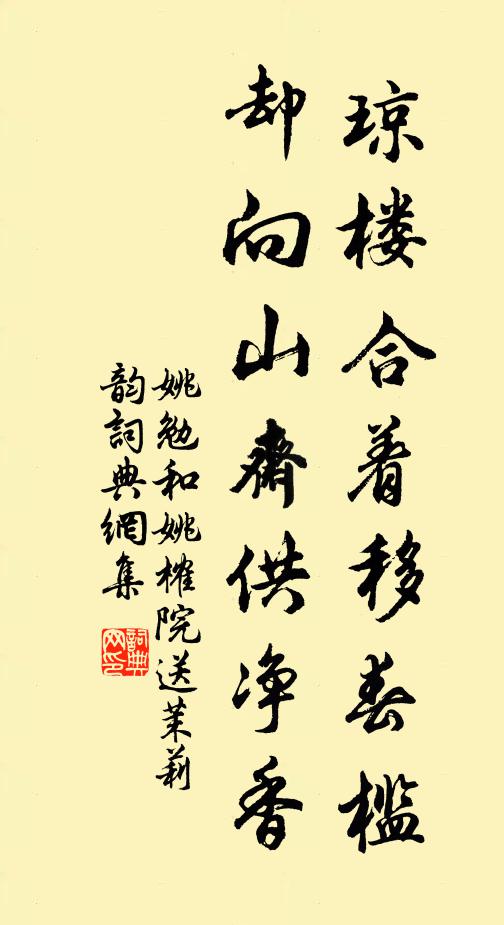 琼楼合着移春槛
却向山斋供净香
姚勉和姚榷院送茉莉
韵词典网集
词典
网印